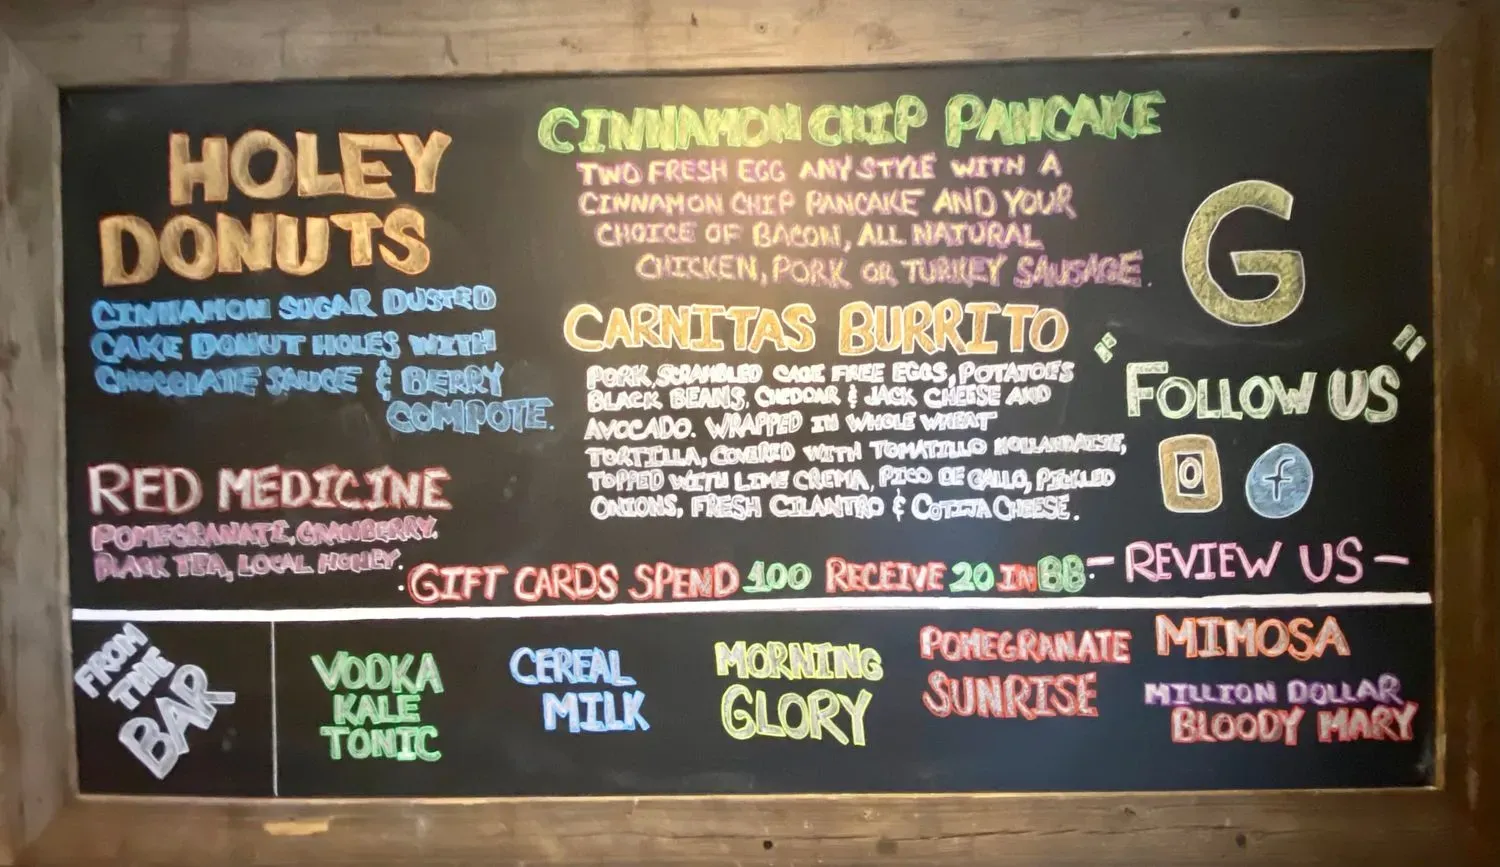 HOLEY
DONUTS
CINNAMON SUGAR DUSTED
CAKE DONUT HOLES WITH
CHOCOLATE SAUCE & BERRY
COMPOTE.
RED MEDICINE
POMEGRANATE, CRANBERRY,
BLACK TEA, LOCAL HONEY.
CINNAMON CHIP PANCAKE
TWO FRESH EGG ANY STYLE WITH A
CINNAMON CHIP PANCAKE AND YOUR
CHOICE OF BACON, ALL NATURAL
CHICKEN, PORK OR TURKEY SAUSAGE.
CARNITAS BURRITO
PORK, SCRAMBLED CAGE FREE EGGS, POTATOES
BLACK BEANS, CHEDDAR & JACK CHEESE AND
AVOCADO. WRAPPED IN WHOLE WHEAT
TORTILLA, COVERED WITH TOMATILLO HOLLANDAISE,
TOPPED WITH LIME CREMA, PICO DE GALLO, PICKLED
ONIONS, FRESH CILANTRO & COTIJA CHEESE.
G
"FOLLOW US"
f
- REVIEW US -
GIFT CARDS SPEND 100 RECEIVE 20 IN BB
FROM
THE
BAR
VODKA
KALE
TONIC
CEREAL
MILK
MORNING
GLORY
POMEGRANATE
SUNRISE
MIMOSA
MILLION DOLLAR
BLOODY MARY